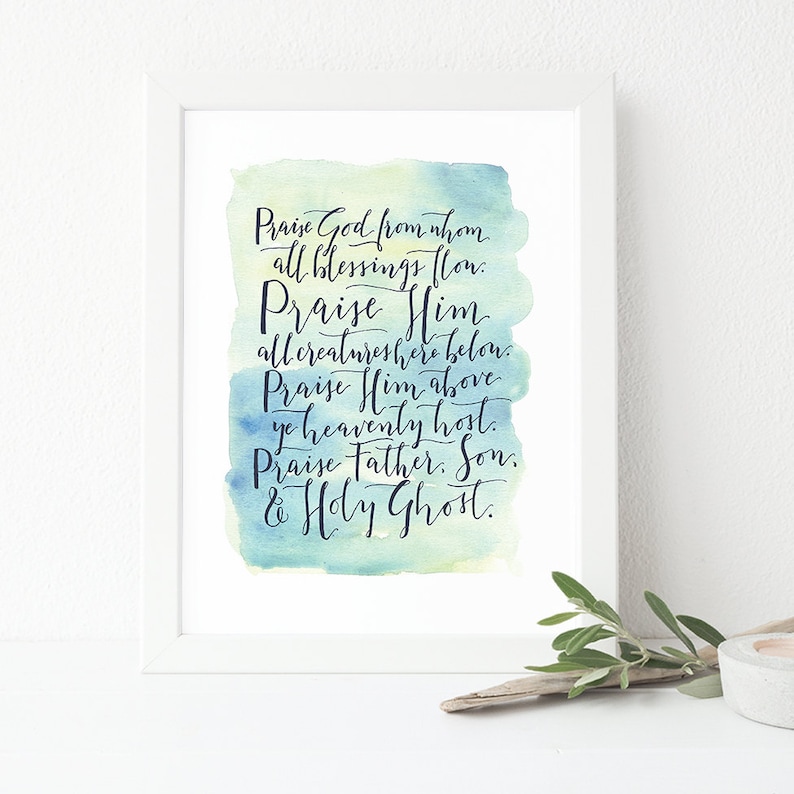 Praise God from whom
all blessings flow.
Praise Him
all creatures here below.
Praise Him above
ye heavenly host.
Praise Father, Son,
& Holy Ghost.